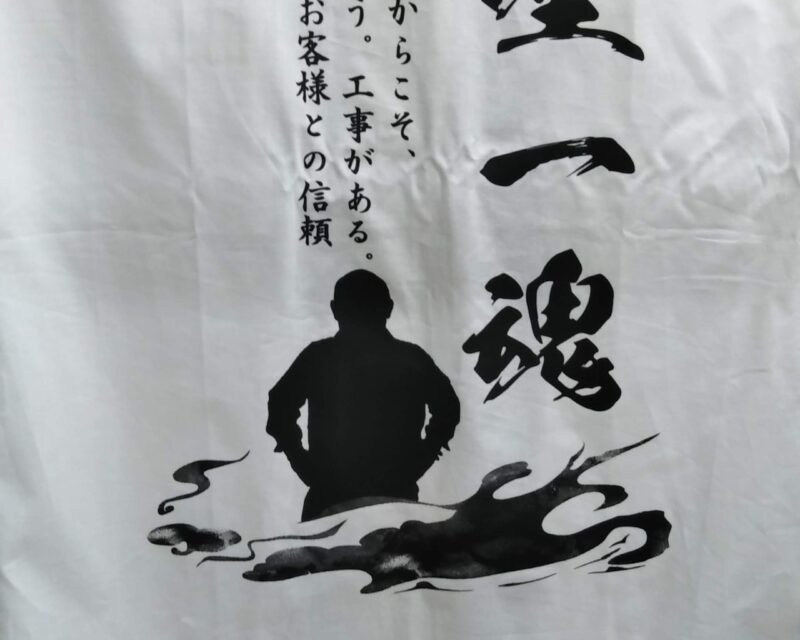 一魂
からこそ、
う。工事がある。
お客様との信頼